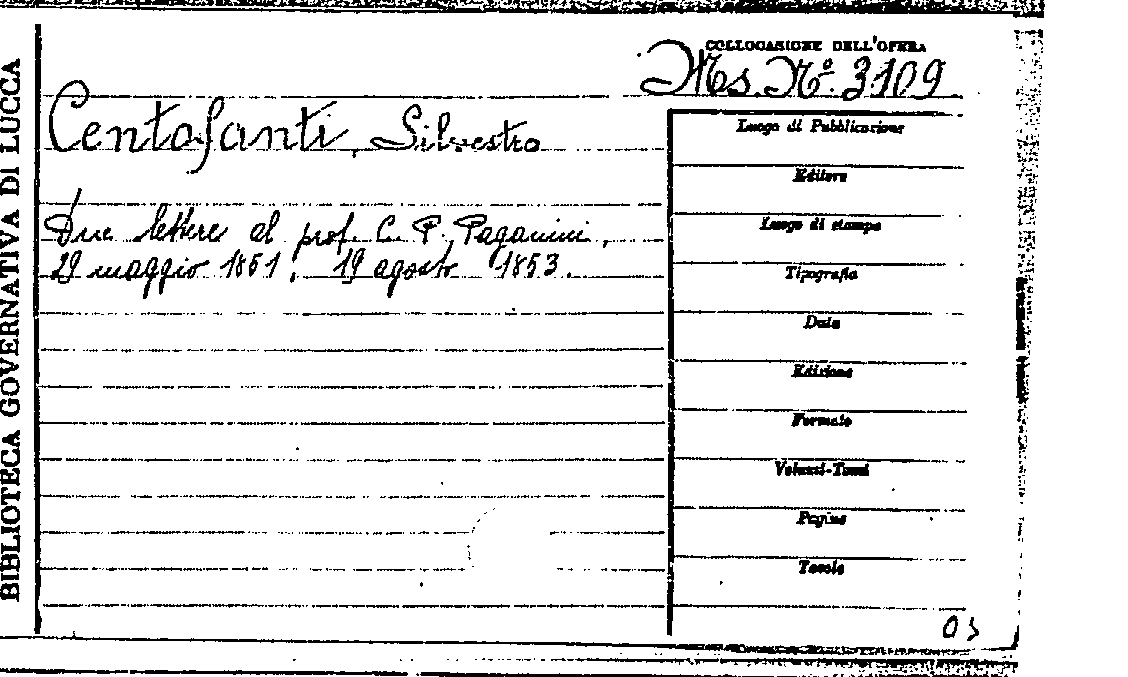 BIBLIOTECA GOVERNATIVA DI LUCCA
COLLOCAZIONE DELL'OPERA
Ms. Nº. 3109
Centofanti, Silvestro
Due lettere al prof. C. P. Paganini,
29 maggio 1851; 19 agosto 1853.
Luogo di Pubblicazione
Editore
Luogo di stampa
Tipografia
Data
Edizione
Formato
Volumi-Tomi
Pagine
Tavole